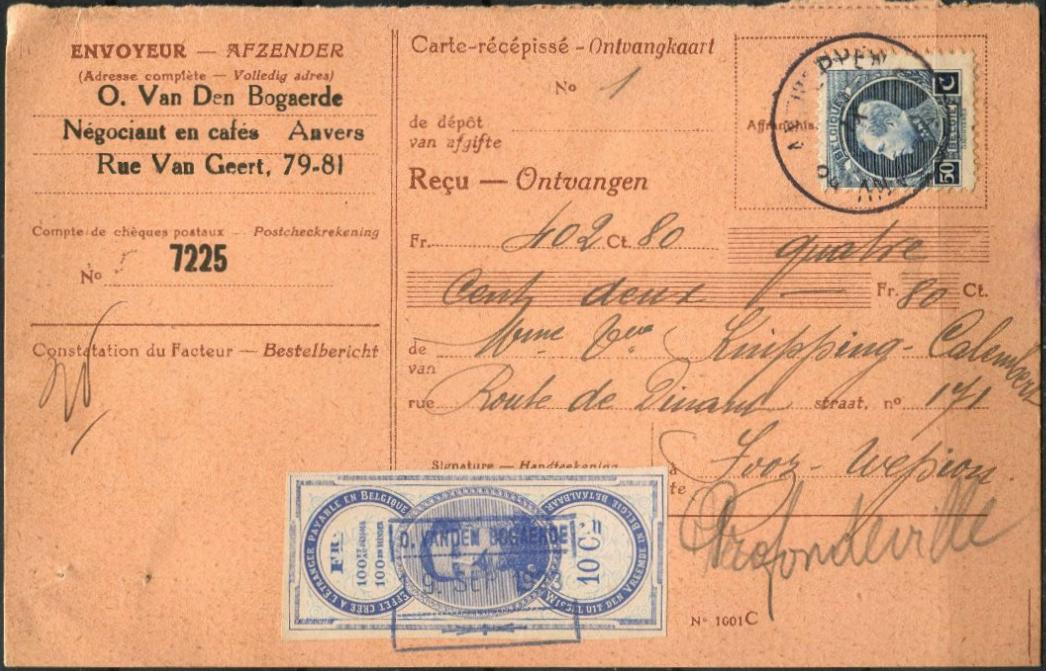 ENVOYEUR — AFZENDER
(Adresse complète — Volledig adres)
O. Van Den Bogaerde
Négociant en cafés Anvers
Rue Van Geert, 79-81
Compte de chèques postaux — Postcheckrekening
No 7225
Constatation du Facteur — Bestelbericht
Carte-récépissé - Ontvangkaart
No 1
de dépôt
van afgifte
Affranchis.
50
Reçu — Ontvangen
Fr. 402 Ct. 80 quatre
Cent deux — Fr. 80 Ct.
de
van Mme Vve Knipping-Calembert
rue Route de Dinant straat, no 171
Signature — Handteekening
à
te Fooz-Wépion.
Profondeville
EFFET CRÉÉ A L'ÉTRANGER PAYABLE EN BELGIQUE
FR.
100 ET MOINS
10 Cn
WISSEL UIT DEN VREEMDE IN BELGIË BETAALBAAR
O. VANDEN BOGAERDE
9. SEPT
No 1001 C